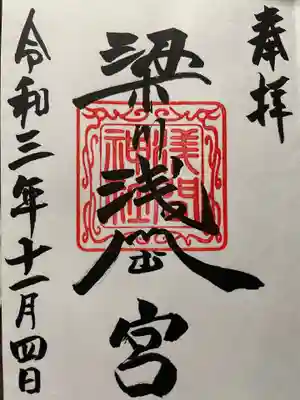 奉拝
梁川浅間宮
浅間
神社
令和三年十一月四日